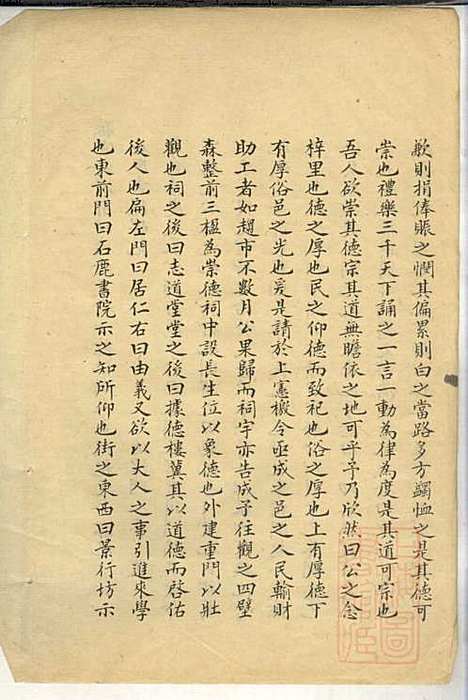 歉則捐俸賑之憫其偏累則白之當路多方蠲恤之是其德可
崇也禮樂三千天下誦之一言一動為律為度是其道可宗也
吾人欲崇其德宗其道無瞻依之地可乎予乃欣然曰公之念
梓里也德之厚也民之仰德而致祀也俗之厚也上有厚德下
有厚俗邑之光也爰是請於上憲檄令亟成之邑之人民輸財
助工者如趨市不數月公果歸而祠宇亦告成予往觀之四壁
森整前三楹為崇德祠中設長生位以象德也外建重門以壯
觀也祠之後曰志道堂堂之後曰據德樓冀其以道德而啓佑
後人也扁左門曰居仁右曰由義又欲以大人之事引進來學
也東前門曰石鹿書院示之知所仰也街之東西曰景行坊示